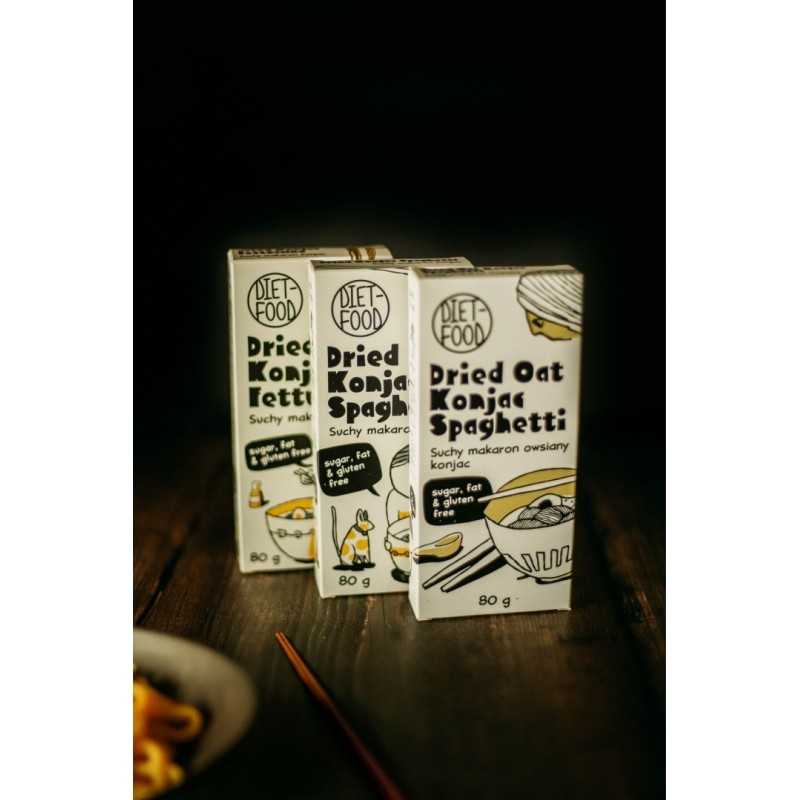 DIET-
FOOD
Dried
Konj
Fettu
Suchy mak
sugar, fat
& gluten free
80 g
DIET-
FOOD
Dried
Konja
Spagh
Suchy makaro
sugar, fat
& gluten
free
80 g
DIET-
FOOD
Dried Oat
Konjac
Spaghetti
Suchy makaron owsiany
konjac
sugar, fat
& gluten
free
80 g